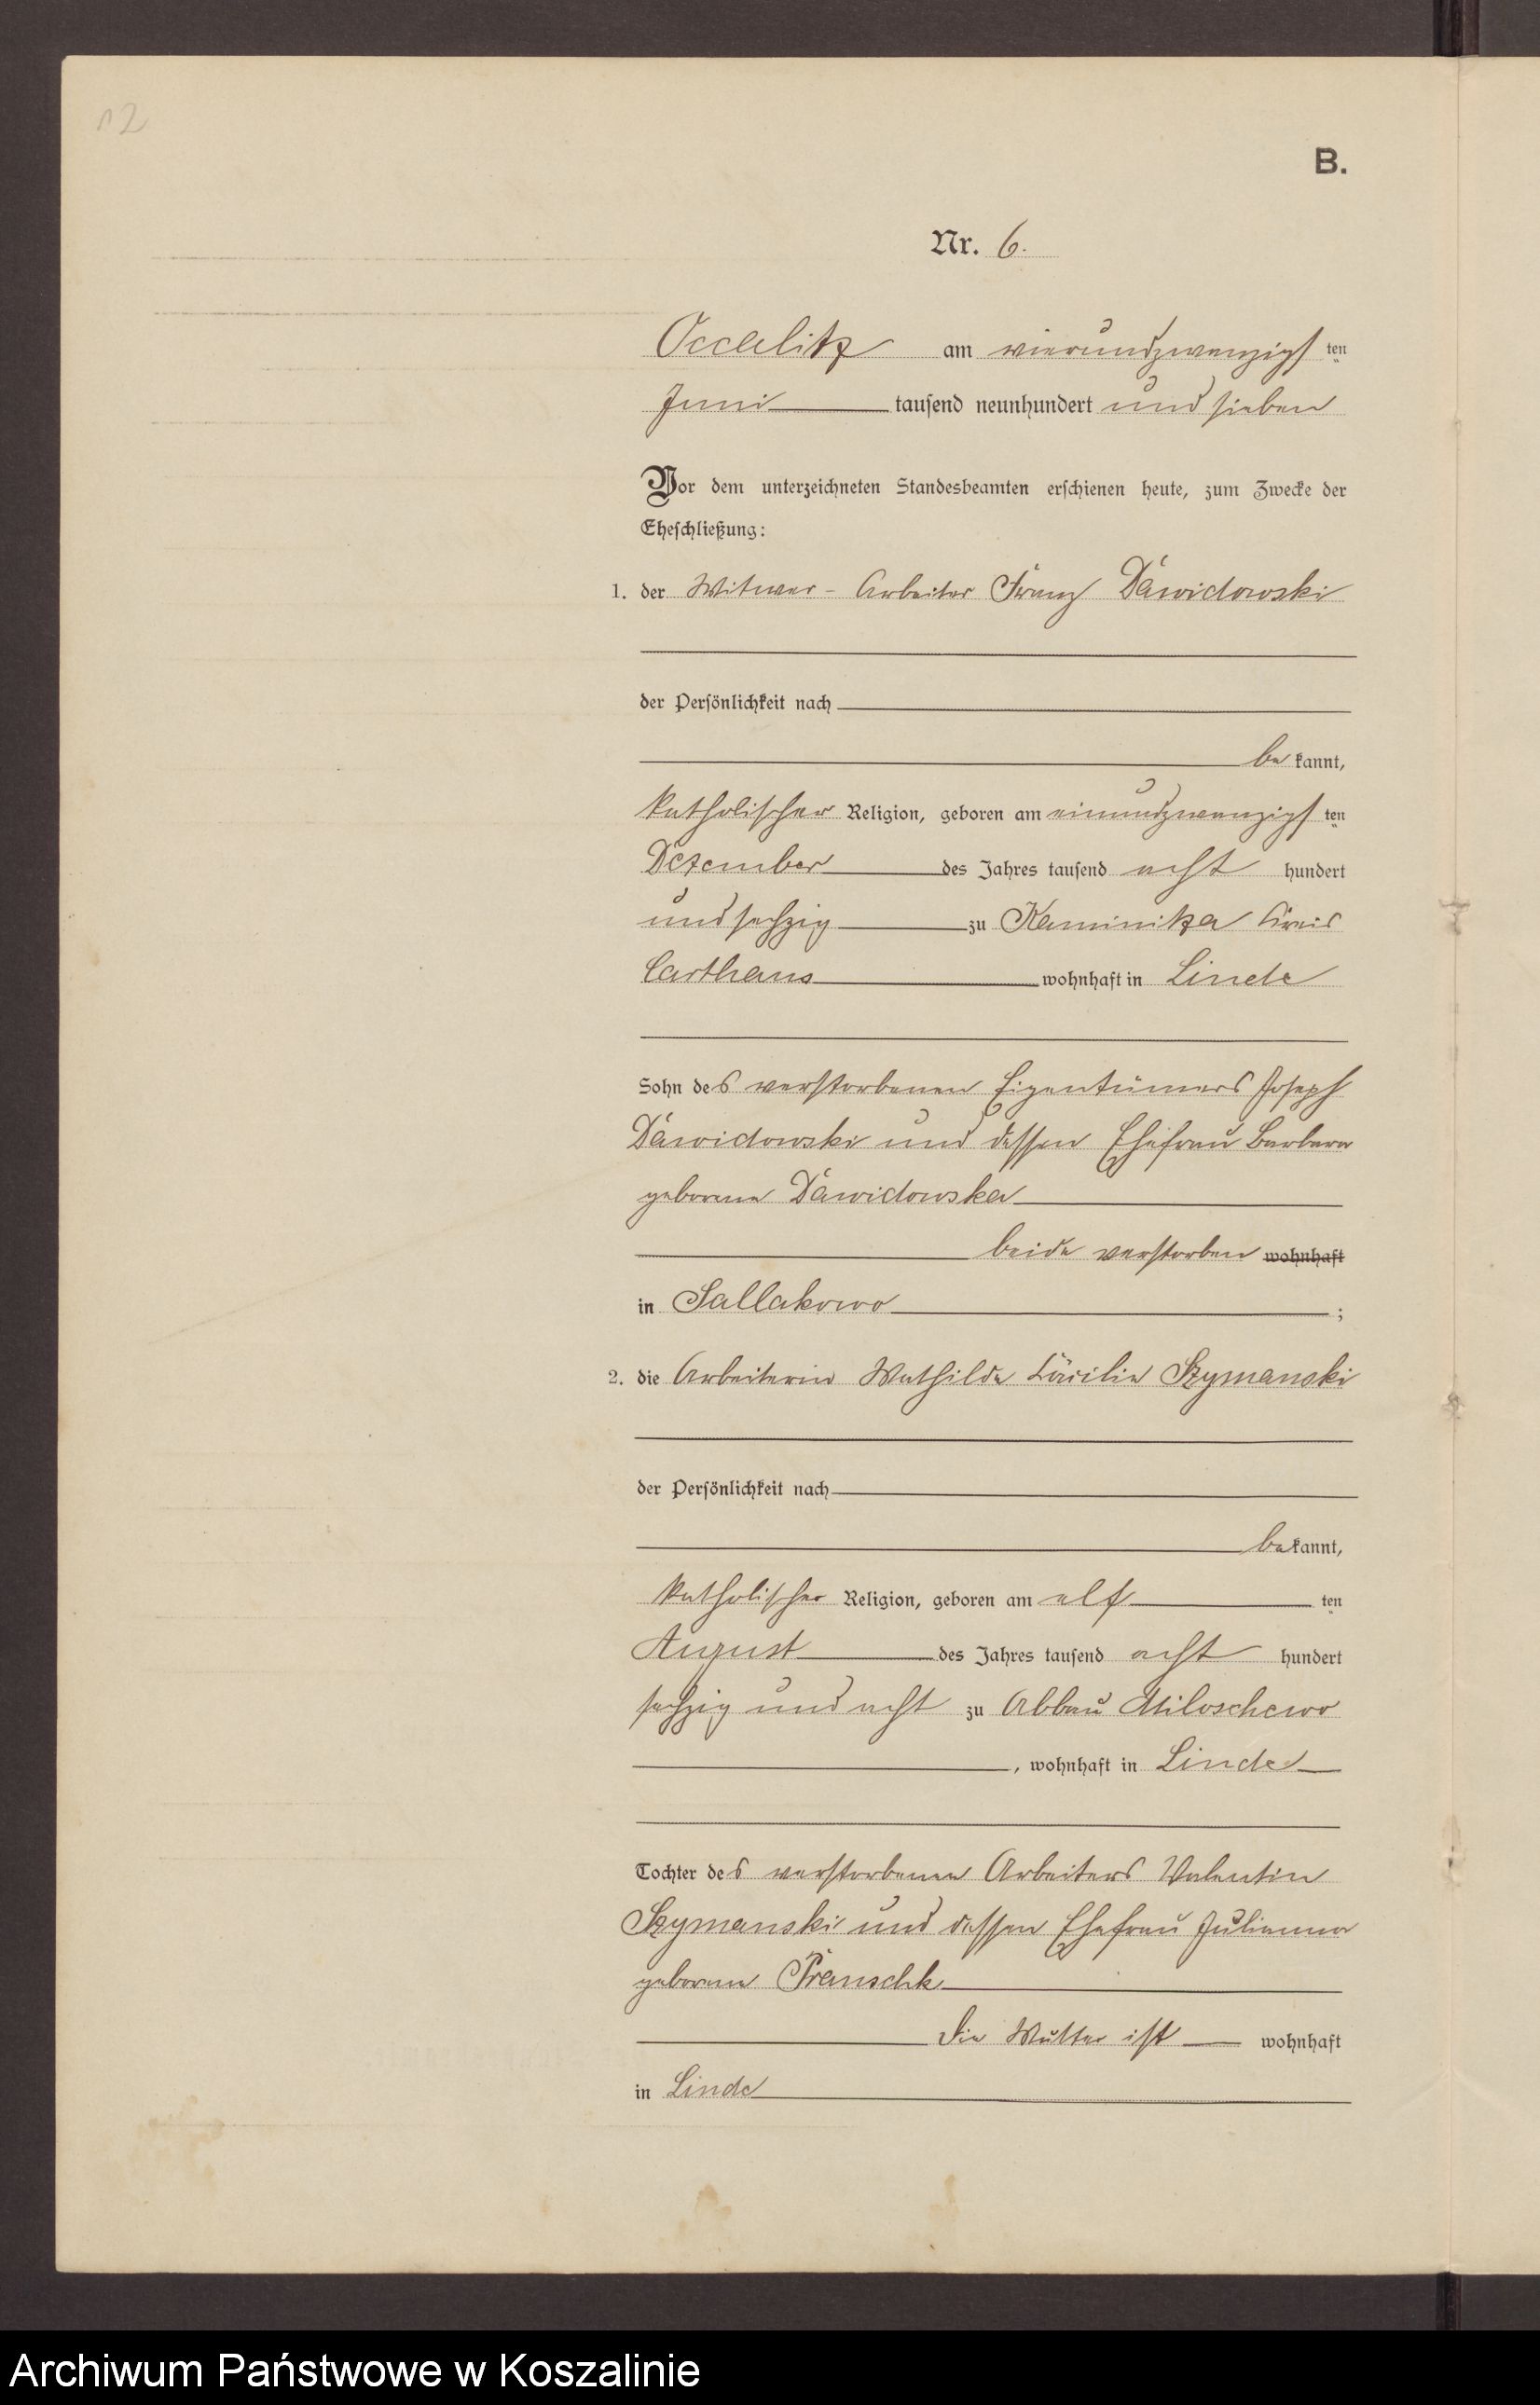 12
B.
Nr. 6.
Occalitz am vierundzwanzigsten
Juni tausend neunhundert und sieben
Vor dem unterzeichneten Standesbeamten erschienen heute, zum Zwecke der
Eheschließung:
1. der Witwer - Arbeiter Franz Dawidowski
der Persönlichkeit nach
bekannt,
katholischer Religion, geboren am einundzwanzigsten
Dezember des Jahres tausend acht hundert
und sechzig zu Kaminitza Kreis
Carthaus wohnhaft in Linde
Sohn des verstorbenen Eigentümers Joseph
Dawidowski und dessen Ehefrau Barbara
geborene Dawidowska
beide verstorben wohnhaft
in Sallakowo ;
2. die Arbeiterin Mathilde Cäcilie Szymanski
der Persönlichkeit nach
bekannt,
katholischer Religion, geboren am elften
August des Jahres tausend acht hundert
sechzig und acht zu Abbau Miloschewo
, wohnhaft in Linde
Tochter des verstorbenen Arbeiters Valentin
Szymanski und dessen Ehefrau Julianna
geborene Pranschk
Die Mutter ist wohnhaft
in Linde
Archiwum Państwowe w Koszalinie